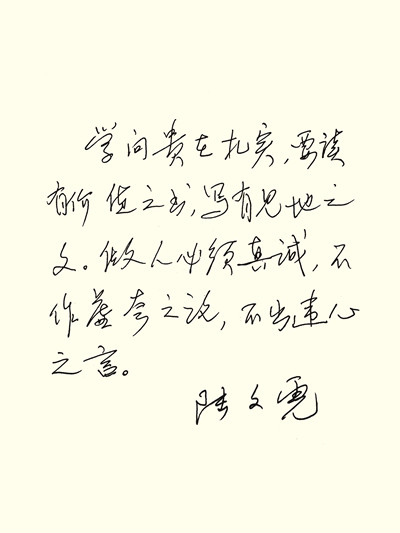 学问贵在扎实，要读
有价值之书，写有见地之
文。做人必须真诚，不
作虚夸之论，不出违心
之言。
陆文